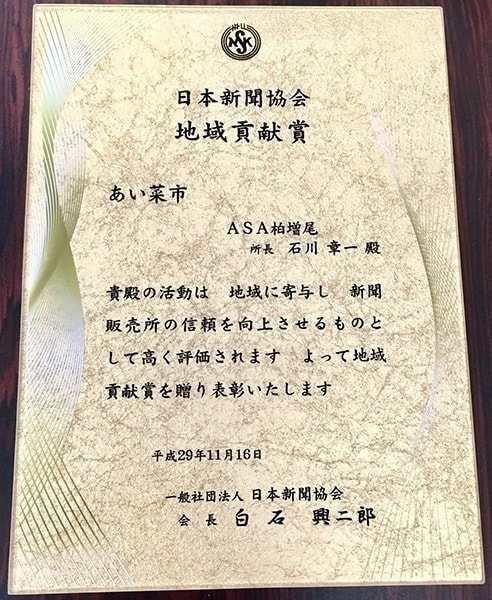 NSK
日本新聞協会
地域貢献賞
あい菜市
ASA柏増尾
所長 石川 章一 殿
貴殿の活動は 地域に寄与し 新聞
販売所の信頼を向上させるものと
して高く評価されます よって地域
貢献賞を贈り表彰いたします
平成29年11月16日
一般社団法人 日本新聞協会
会長 白石 興二郎